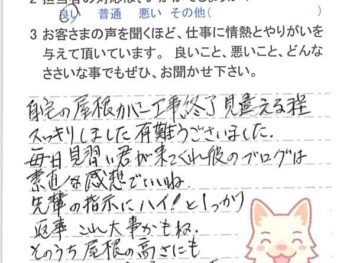 良い 普通 悪い その他( )
3 お客さまの声を聞くほど、仕事に情熱とやりがいを
与えて頂いています。良いこと、悪いこと、どんな
ささいな事でもぜひ、お聞かせ下さい。
自宅の屋根カバー工事終了見違える程
スッキリしました有難うございました.
毎日見習い君が来てくれ彼のブログは
素直な感想でいいね.
先輩の指示にハイ!としっかり
返事 これ大事かもね.
そのうち屋根の高さにも